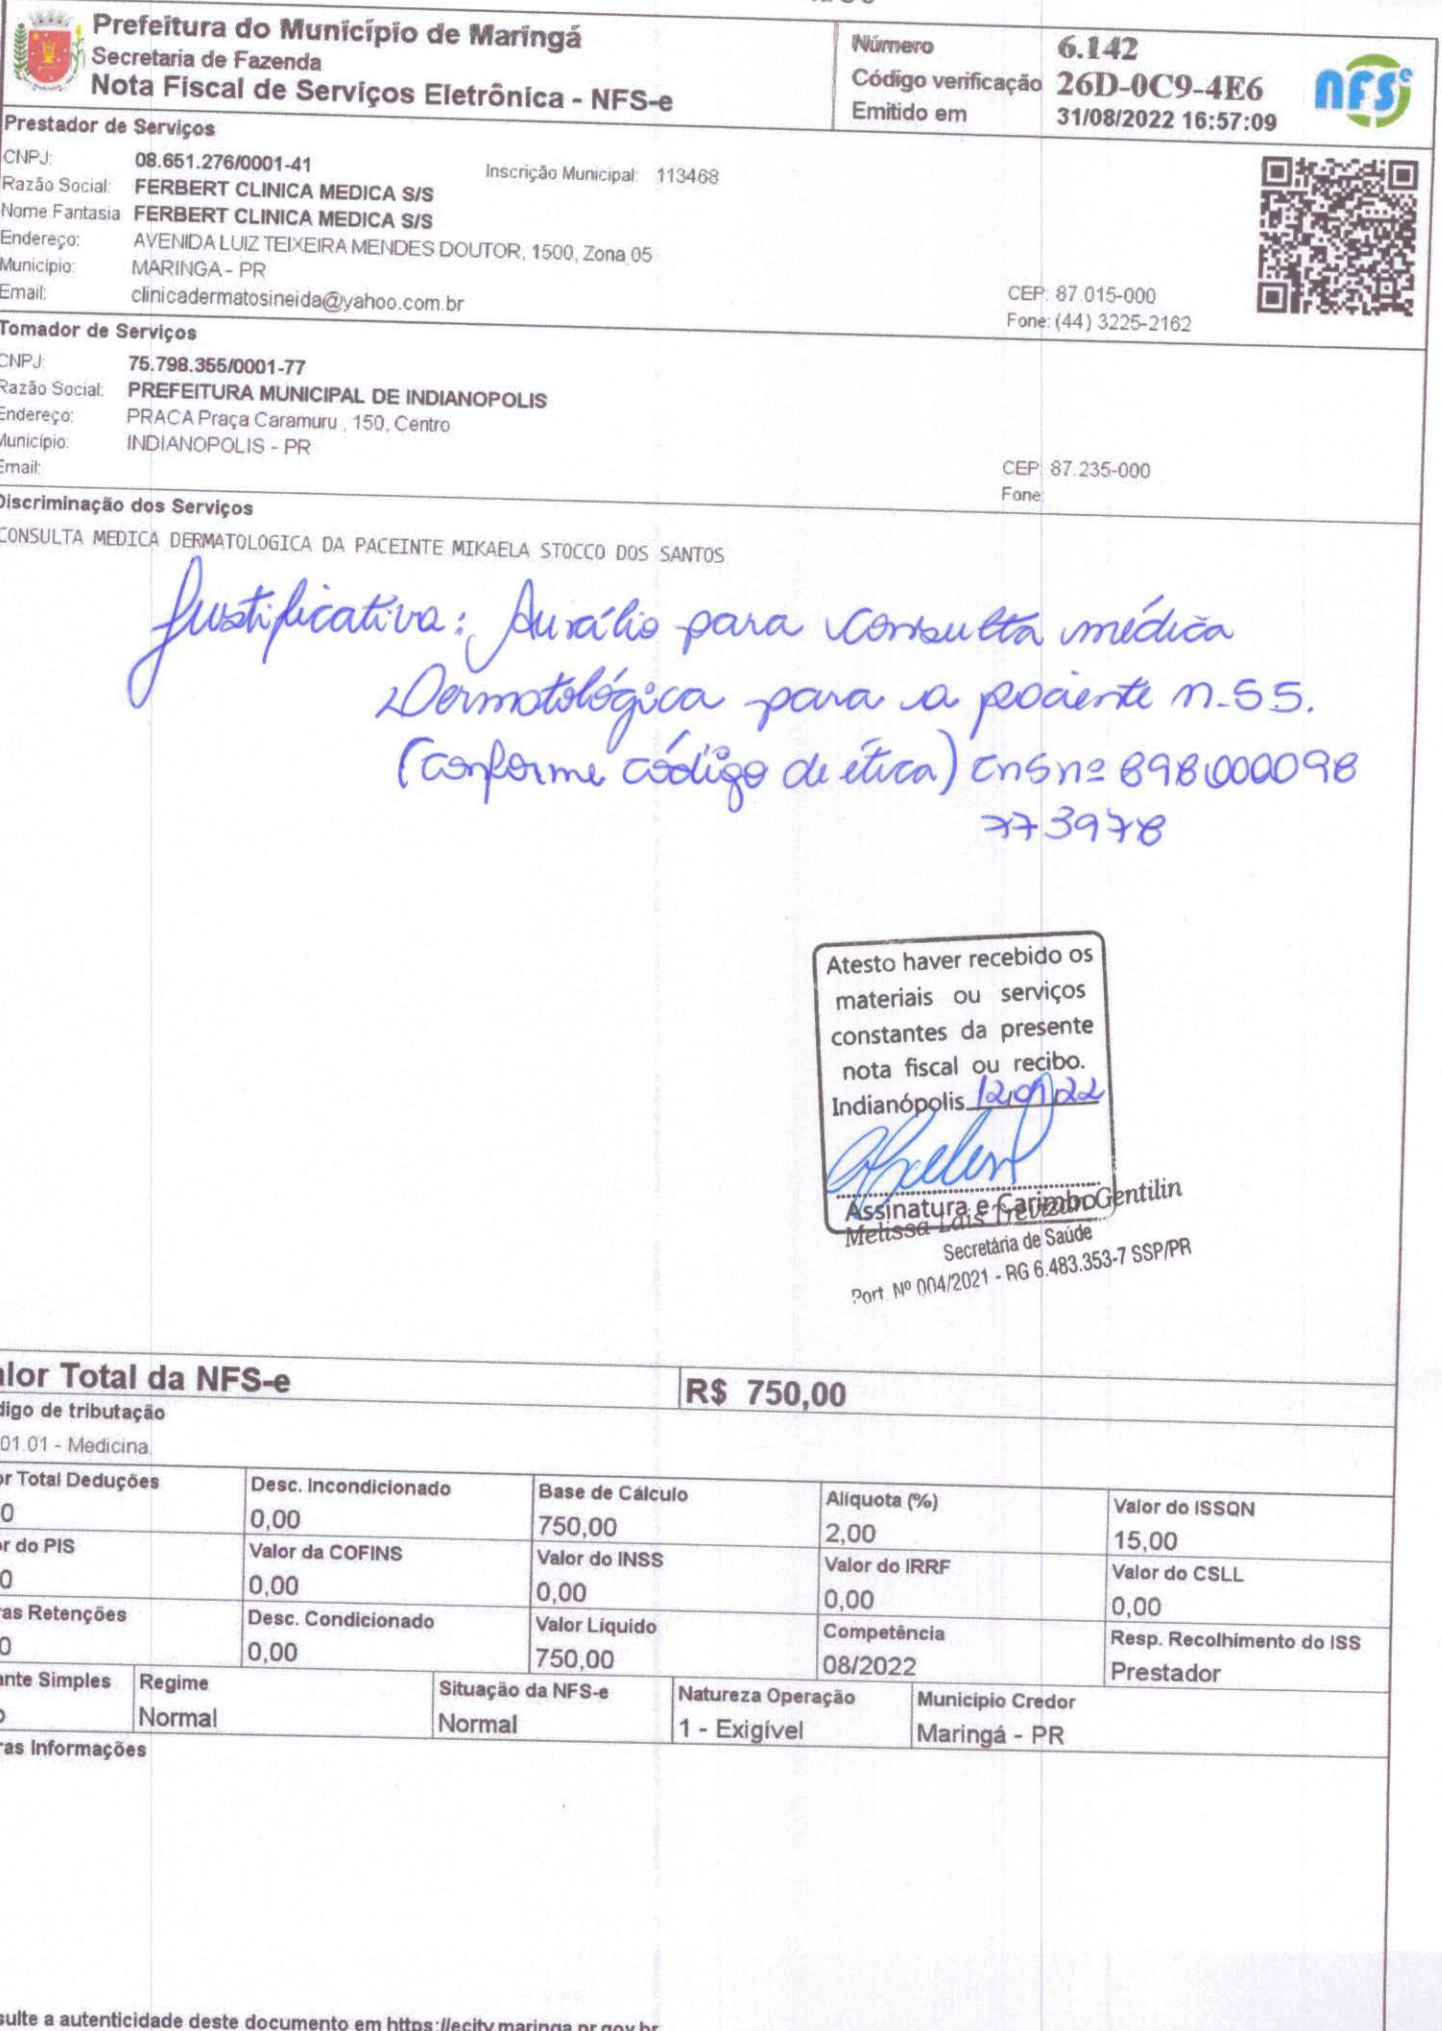 Prefeitura do Município de Maringá
Secretaria de Fazenda
Nota Fiscal de Serviços Eletrônica - NFS-e
Número 6.142
Código verificação 26D-0C9-4E6
Emitido em 31/08/2022 16:57:09
NFSe
Prestador de Serviços
CNPJ: 08.651.276/0001-41 Inscrição Municipal: 113468
Razão Social: FERBERT CLINICA MEDICA S/S
Nome Fantasia FERBERT CLINICA MEDICA S/S
Endereço: AVENIDA LUIZ TEIXEIRA MENDES DOUTOR, 1500, Zona 05
Município: MARINGA - PR
CEP: 87.015-000
Email: clinicadermatosineida@yahoo.com.br
Fone: (44) 3225-2162
Tomador de Serviços
CNPJ: 75.798.355/0001-77
Razão Social: PREFEITURA MUNICIPAL DE INDIANOPOLIS
Endereço: PRACA Praça Caramuru , 150, Centro
Município: INDIANOPOLIS - PR
CEP: 87.235-000
Email:
Fone:
Discriminação dos Serviços
CONSULTA MEDICA DERMATOLOGICA DA PACEINTE MIKAELA STOCCO DOS SANTOS
Justificativa: Auxílio para consulta médica
Dermatológica para a paciente M.S.S.
(conforme código de ética) CNS nº 898000098
773978
Atesto haver recebido os
materiais ou serviços
constantes da presente
nota fiscal ou recibo.
Indianópolis 12/09/22
Assinatura e Carimbo
Melissa Lais Trevizan Gentilin
Secretária de Saúde
Port. Nº 004/2021 - RG 6.483.353-7 SSP/PR
alor Total da NFS-e R$ 750,00
digo de tributação
01.01 - Medicina
or Total Deduções Desc. Incondicionado Base de Cálculo Alíquota (%) Valor do ISSQN
0 0,00 750,00 2,00 15,00
or do PIS Valor da COFINS Valor do INSS Valor do IRRF Valor do CSLL
0 0,00 0,00 0,00 0,00
ras Retenções Desc. Condicionado Valor Líquido Competência Resp. Recolhimento do ISS
0 0,00 750,00 08/2022 Prestador
ante Simples Regime Situação da NFS-e Natureza Operação Município Credor
o Normal Normal 1 - Exigível Maringá - PR
ras Informações
sulte a autenticidade deste documento em https://ecity.maringa.pr.gov.br